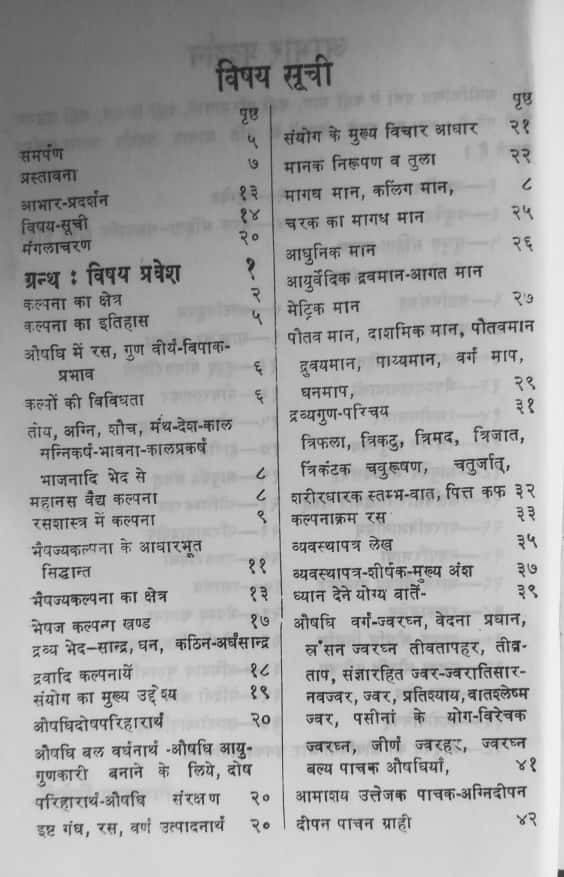 विषय सूची
पृष्ठ
समर्पण ५
प्रस्तावना ७
आभार-प्रदर्शन १३
विषय-सूची १४
मंगलाचरण २०
ग्रन्थ : विषय प्रवेश १
कल्पना का क्षेत्र २
कल्पना का इतिहास ५
औषधि में रस, गुण वीर्य-विपाक-
प्रभाव ६
कल्पों की विविधता ६
तोय, अग्नि, शौच, मंथ-देश-काल
मन्निकर्ष-भावना-कालप्रकर्ष
भाजनादि भेद से ८
महानस वैद्य कल्पना ८
रसशास्त्र में कल्पना ९
भैषज्यकल्पना के आधारभूत
सिद्धान्त ११
भैषज्यकल्पना का क्षेत्र १३
भेषज कल्पना खण्ड १७
द्रव्य भेद–सान्द्र, घन, कठिन-अर्धसान्द्र
द्रवादि कल्पनायें १८
संयोग का मुख्य उद्देश्य १९
औषधिदोषपरिहारार्थ २०
औषधि बल वर्धनार्थ -औषधि आयु-
गुणकारी बनाने के लिये, दोष
परिहारार्थ-औषधि संरक्षण २०
इष्ट गंध, रस, वर्ण उत्पादनार्थ २०
पृष्ठ
संयोग के मुख्य विचार आधार २१
मानक निरूपण व तुला २२
मागध मान, कलिंग मान, ८
चरक का मागध मान २५
आधुनिक मान २६
आयुर्वेदिक द्रवमान-आगत मान
मेट्रिक मान २७
पौतव मान, दाशमिक मान, पौतवमान
द्रुवयमान, पाय्यमान, वर्ग माप,
घनमाप, २९
द्रव्यगुण-परिचय ३१
त्रिफला, त्रिकटु, त्रिमद, त्रिजात,
त्रिकंटक चवुरूषण, चतुर्जात्,
शरीरधारक स्तम्भ-वात, पित्त कफ ३२
कल्पनाक्रम रस ३३
व्यवस्थापत्र लेख ३५
व्यवस्थापत्र-शीर्षक-मुख्य अंश ३७
ध्यान देने योग्य वातें- ३९
औषधि वर्ग-ज्वरघ्न, वेदना प्रधान,
स्रंसन ज्वरघ्न तीवतापहर, तीव्र-
ताप, संज्ञारहित ज्वर-ज्वरातिसार-
नवज्वर, ज्वर, प्रतिश्याय, वातश्लेष्म
ज्वर, पसीनां के योग-विरेचक
ज्वरघ्न, जीर्ण ज्वरहर, ज्वरघ्न
बल्य पाचक औषधियाँ, ४१
आमाशय उत्तेजक पाचक-अग्निदीपन
दीपन पाचन ग्राही ४२